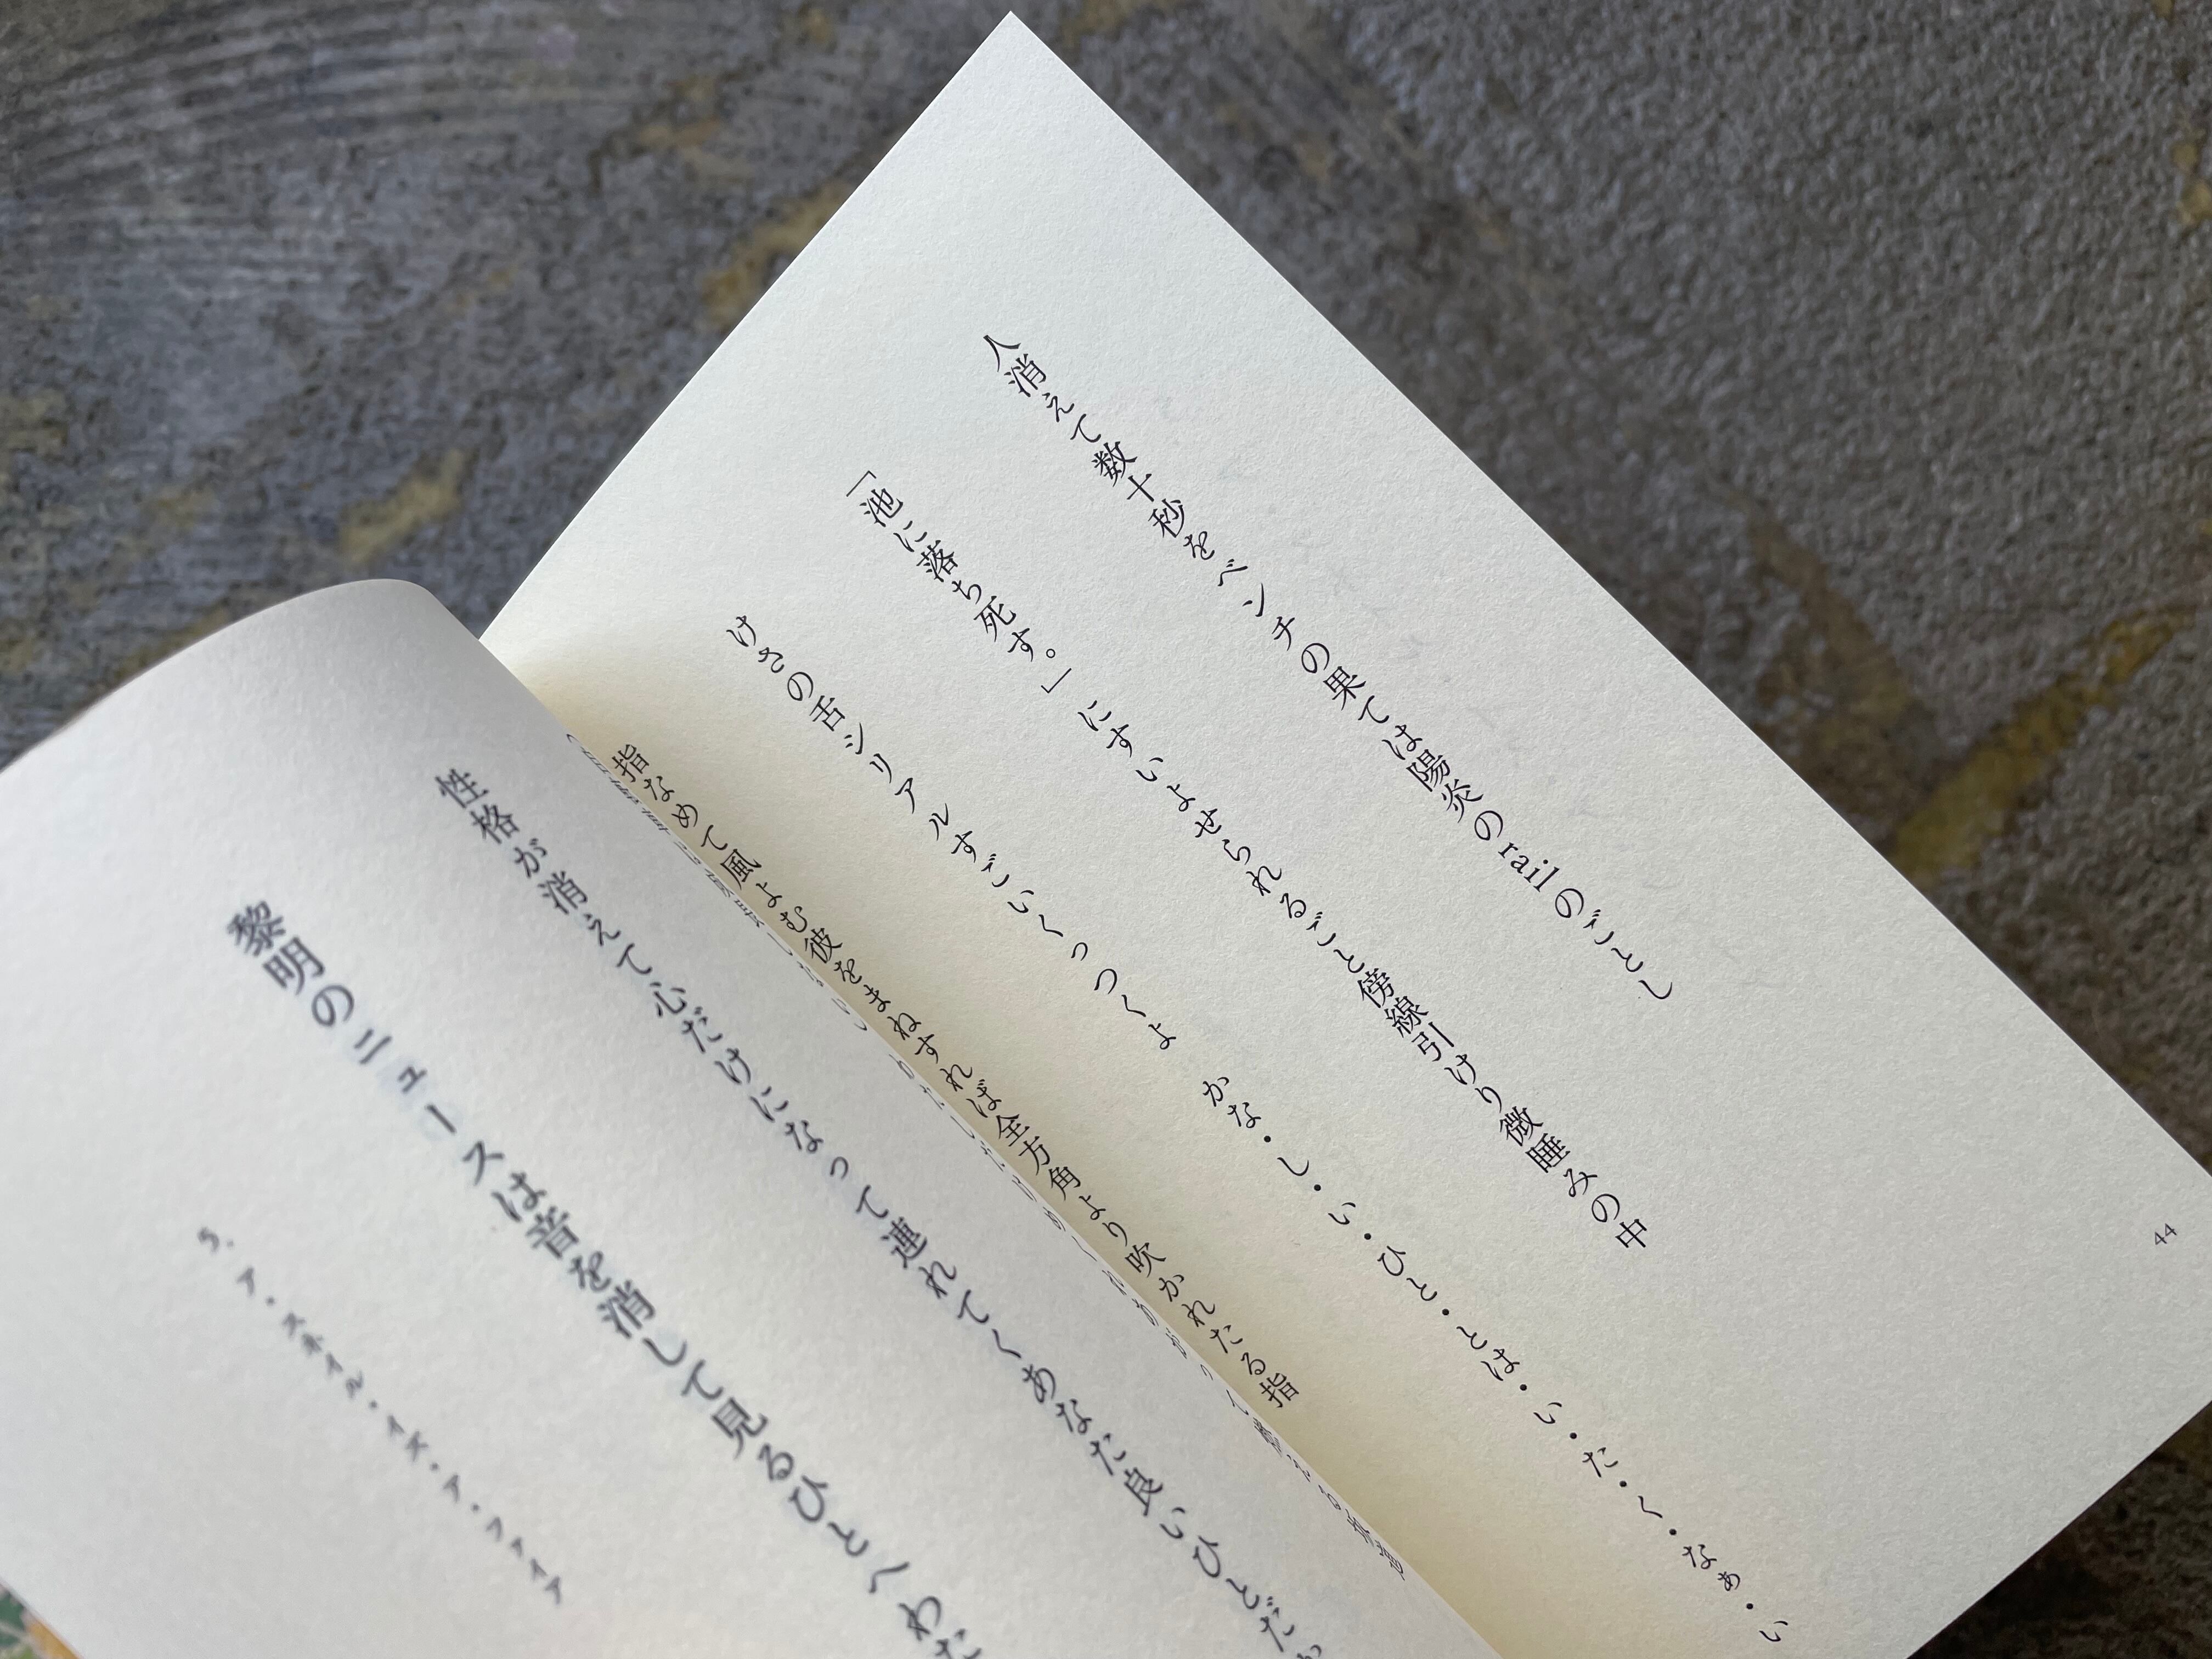 人消えて数十秒をベンチの果ては陽炎のrailのごとし
「池に落ち死す。」にすいよせられるごと傍線引けり微睡みの中
けさの舌シリアルすごいくっつくよ　かな・し・い・ひと・とは・い・た・く・なぁ・い
指なめて風よむ彼をまねすれば全方角より吹かれたる指
44
性格が消えて心だけになって連れてくあなた良いひとだ
黎明のニュースは音を消して見るひとくわた
5. ア・スネイル・イズ・ア・ファイア